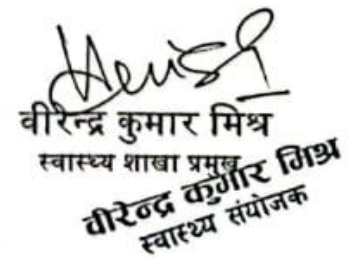 वीरेन्द्र कुमार मिश्र
स्वास्थ्य शाखा प्रमुख
वीरेन्द्र कुमार मिश्र
स्वास्थ्य संयोजक